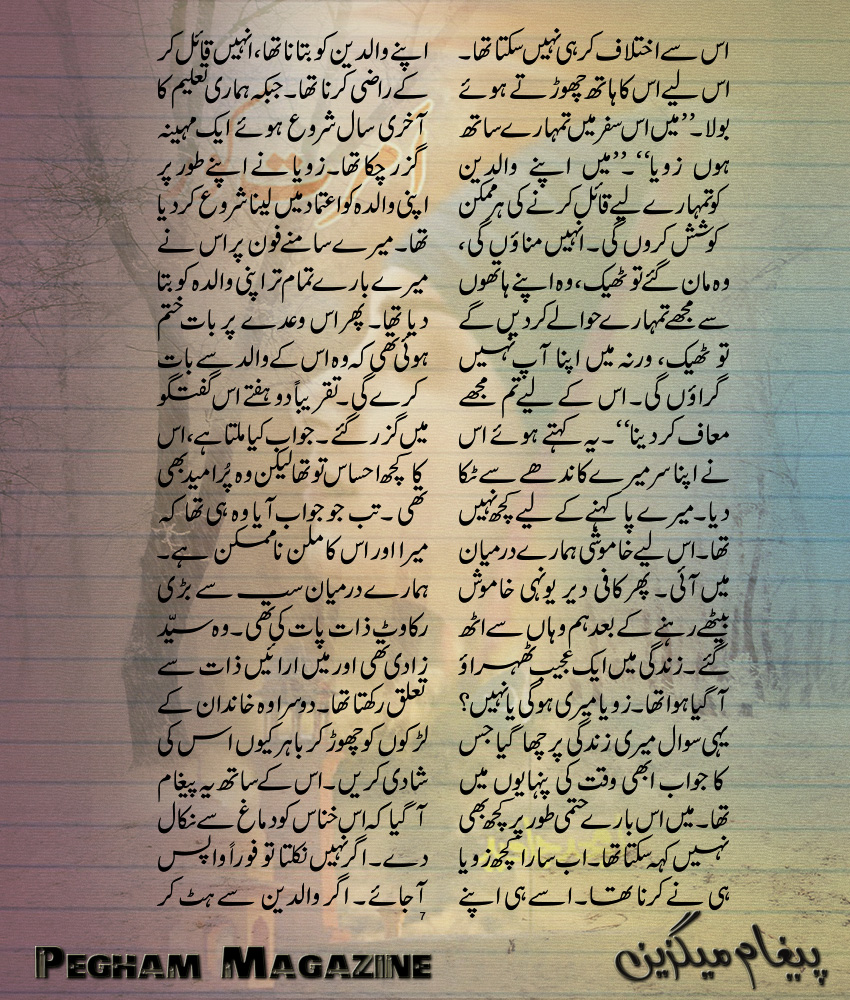 اس سے اختلاف کر ہی نہیں سکتا تھا۔
اس لیے اس کا ہاتھ چھوڑتے ہوئے
بولا۔’’میں اس سفر میں تمہارے ساتھ
ہوں زویا‘‘۔’’میں اپنے والدین
کو تمہارے لیے قائل کرنے کی ہر ممکن
کوشش کروں گی۔انہیں مناؤں گی،
وہ مان گئے تو ٹھیک، وہ اپنے ہاتھوں
سے مجھے تمہارے حوالے کردیں گے
تو ٹھیک، ورنہ میں اپنا آپ نہیں
گراؤں گی۔اس کے لیے تم مجھے
معاف کر دینا‘‘۔یہ کہتے ہوئے اس
نے اپنا سر میرے کاندھے سے ٹکا
دیا۔میرے پا کہنے کے لیے کچھ نہیں
تھا۔اس لیے خاموشی ہمارے درمیان
میں آئی۔ پھر کافی دیر یونہی خاموش
بیٹھے رہنے کے بعد ہم وہاں سے اٹھ
گئے۔زندگی میں ایک عجیب ٹھہراؤ
آ گیا ہوا تھا۔زویا میری ہوگی یا نہیں؟
یہی سوال میری زندگی پر چھا گیا جس
کا جواب ابھی وقت کی پنہایوں میں
تھا۔میں اس بارے حتمی طور پر کچھ بھی
نہیں کہہ سکتا تھا۔اب سارا کچھ زویا
ہی نے کرنا تھا۔ اسے ہی اپنے
اپنے والدین کو بتانا تھا،انہیں قائل کر
کے راضی کرنا تھا۔جبکہ ہماری تعلیم کا
آخری سال شروع ہوئے ایک مہینہ
گزر چکا تھا۔زویا نے اپنے طور پر
اپنی والدہ کو اعتماد میں لینا شروع کر دیا
تھا۔میرے سامنے فون پر اس نے
میرے بارے تمام تر اپنی والدہ کو بتا
دیا تھا۔ پھر اس وعدے پر بات ختم
ہوئی تھی کہ وہ اس کے والد سے بات
کرے گی۔تقریباً دو ہفتے اس گفتگو
میں گزر گئے۔جواب کیا ملتا ہے،اس
کا کچھ احساس تو تھا لیکن وہ پُر امید بھی
تھی۔تب جو جواب آیا وہ ہی تھا کہ
میرا اور اس کا ملن ناممکن ہے۔
ہمارے درمیان سب سے بڑی
رکاوٹ ذات پات کی تھی۔وہ سیّد
زادی تھی اور میں ارائیں ذات سے
تعلق رکھتا تھا۔دوسرا وہ خاندان کے
لڑکوں کو چھوڑ کر باہر کیوں اس کی
شادی کریں۔اس کے ساتھ یہ پیغام
آ گیا کہ اس خناس کو دماغ سے نکال
دے۔اگر نہیں نکلتا تو فوراً واپس
آ جائے۔ اگر والدین سے ہٹ کر
7
PEGHAM MAGAZINE
پیغام میگزین